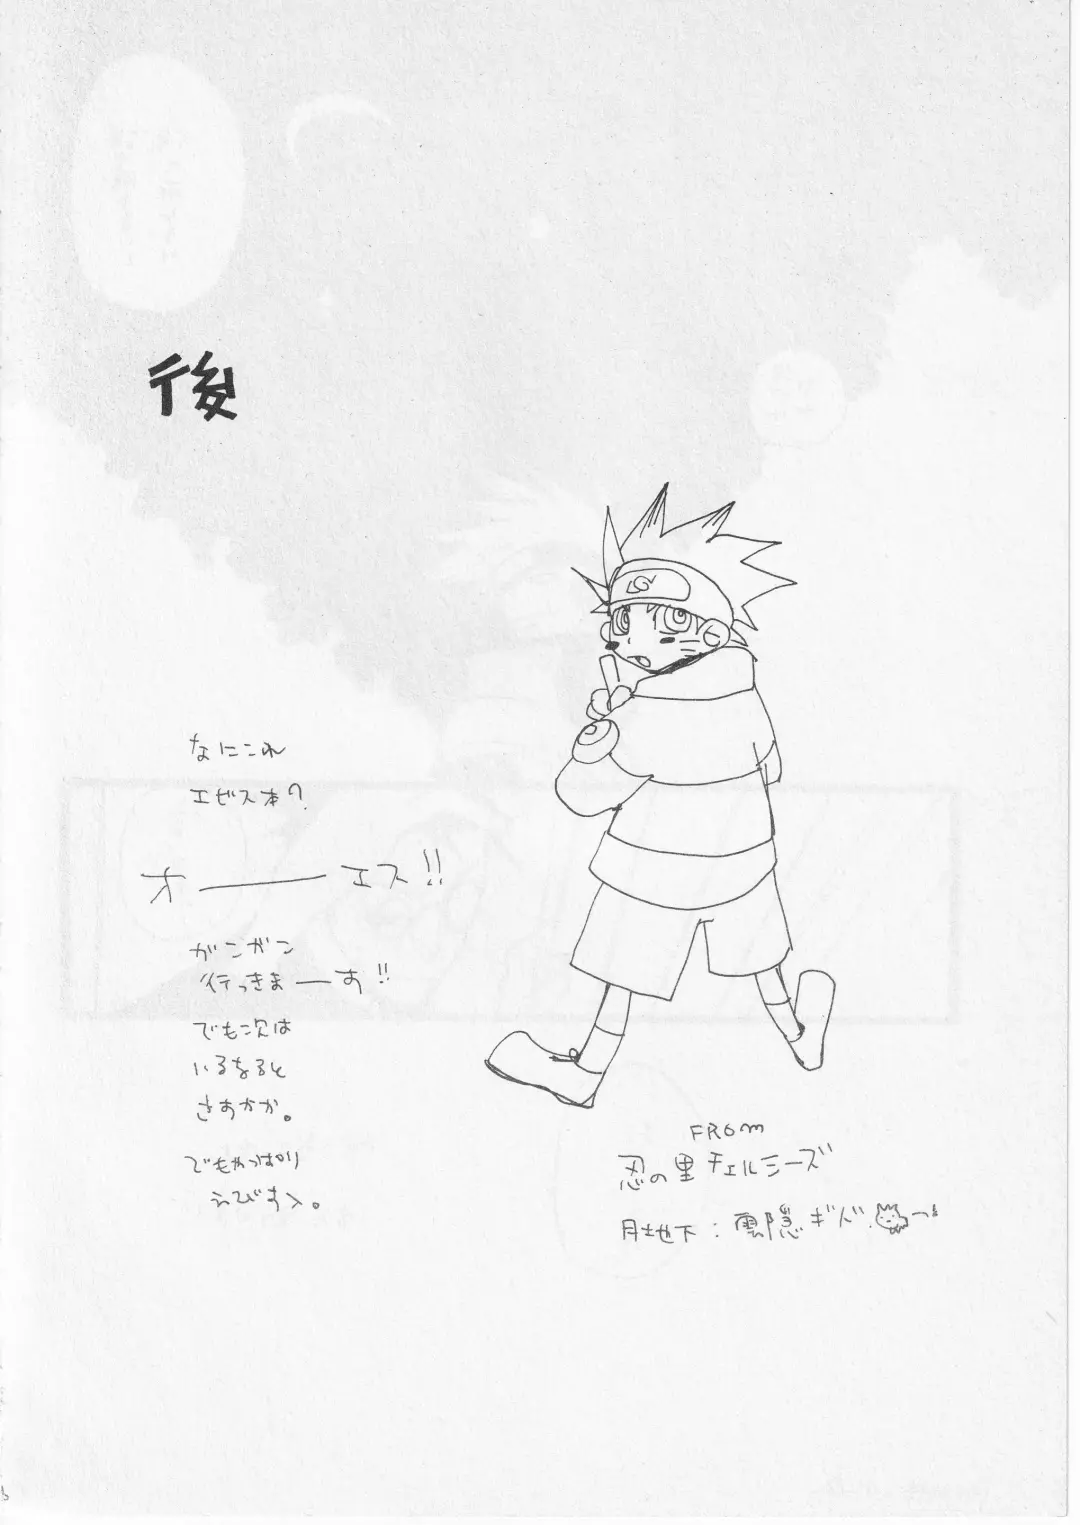 後
なにこれ
エビス本?
オーーーエス!!
ガンガン
行っきまーーす!!
でも次は
いるなると
さあかか。
でもやっぱり
えびすゝ。
FROM
忍の里チェルシーズ
月地下:雲隠ギド